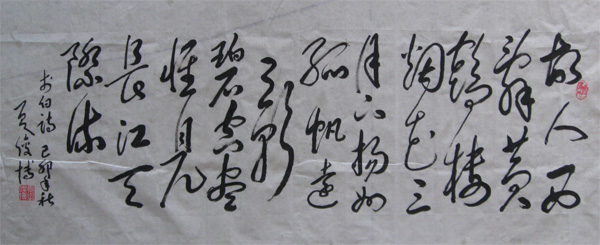 故人西
辞黄
鹤楼
烟花三
月下揚州
孤帆遠
影
碧空盡
惟見
長江天
際流
李白詩 己卯年秋